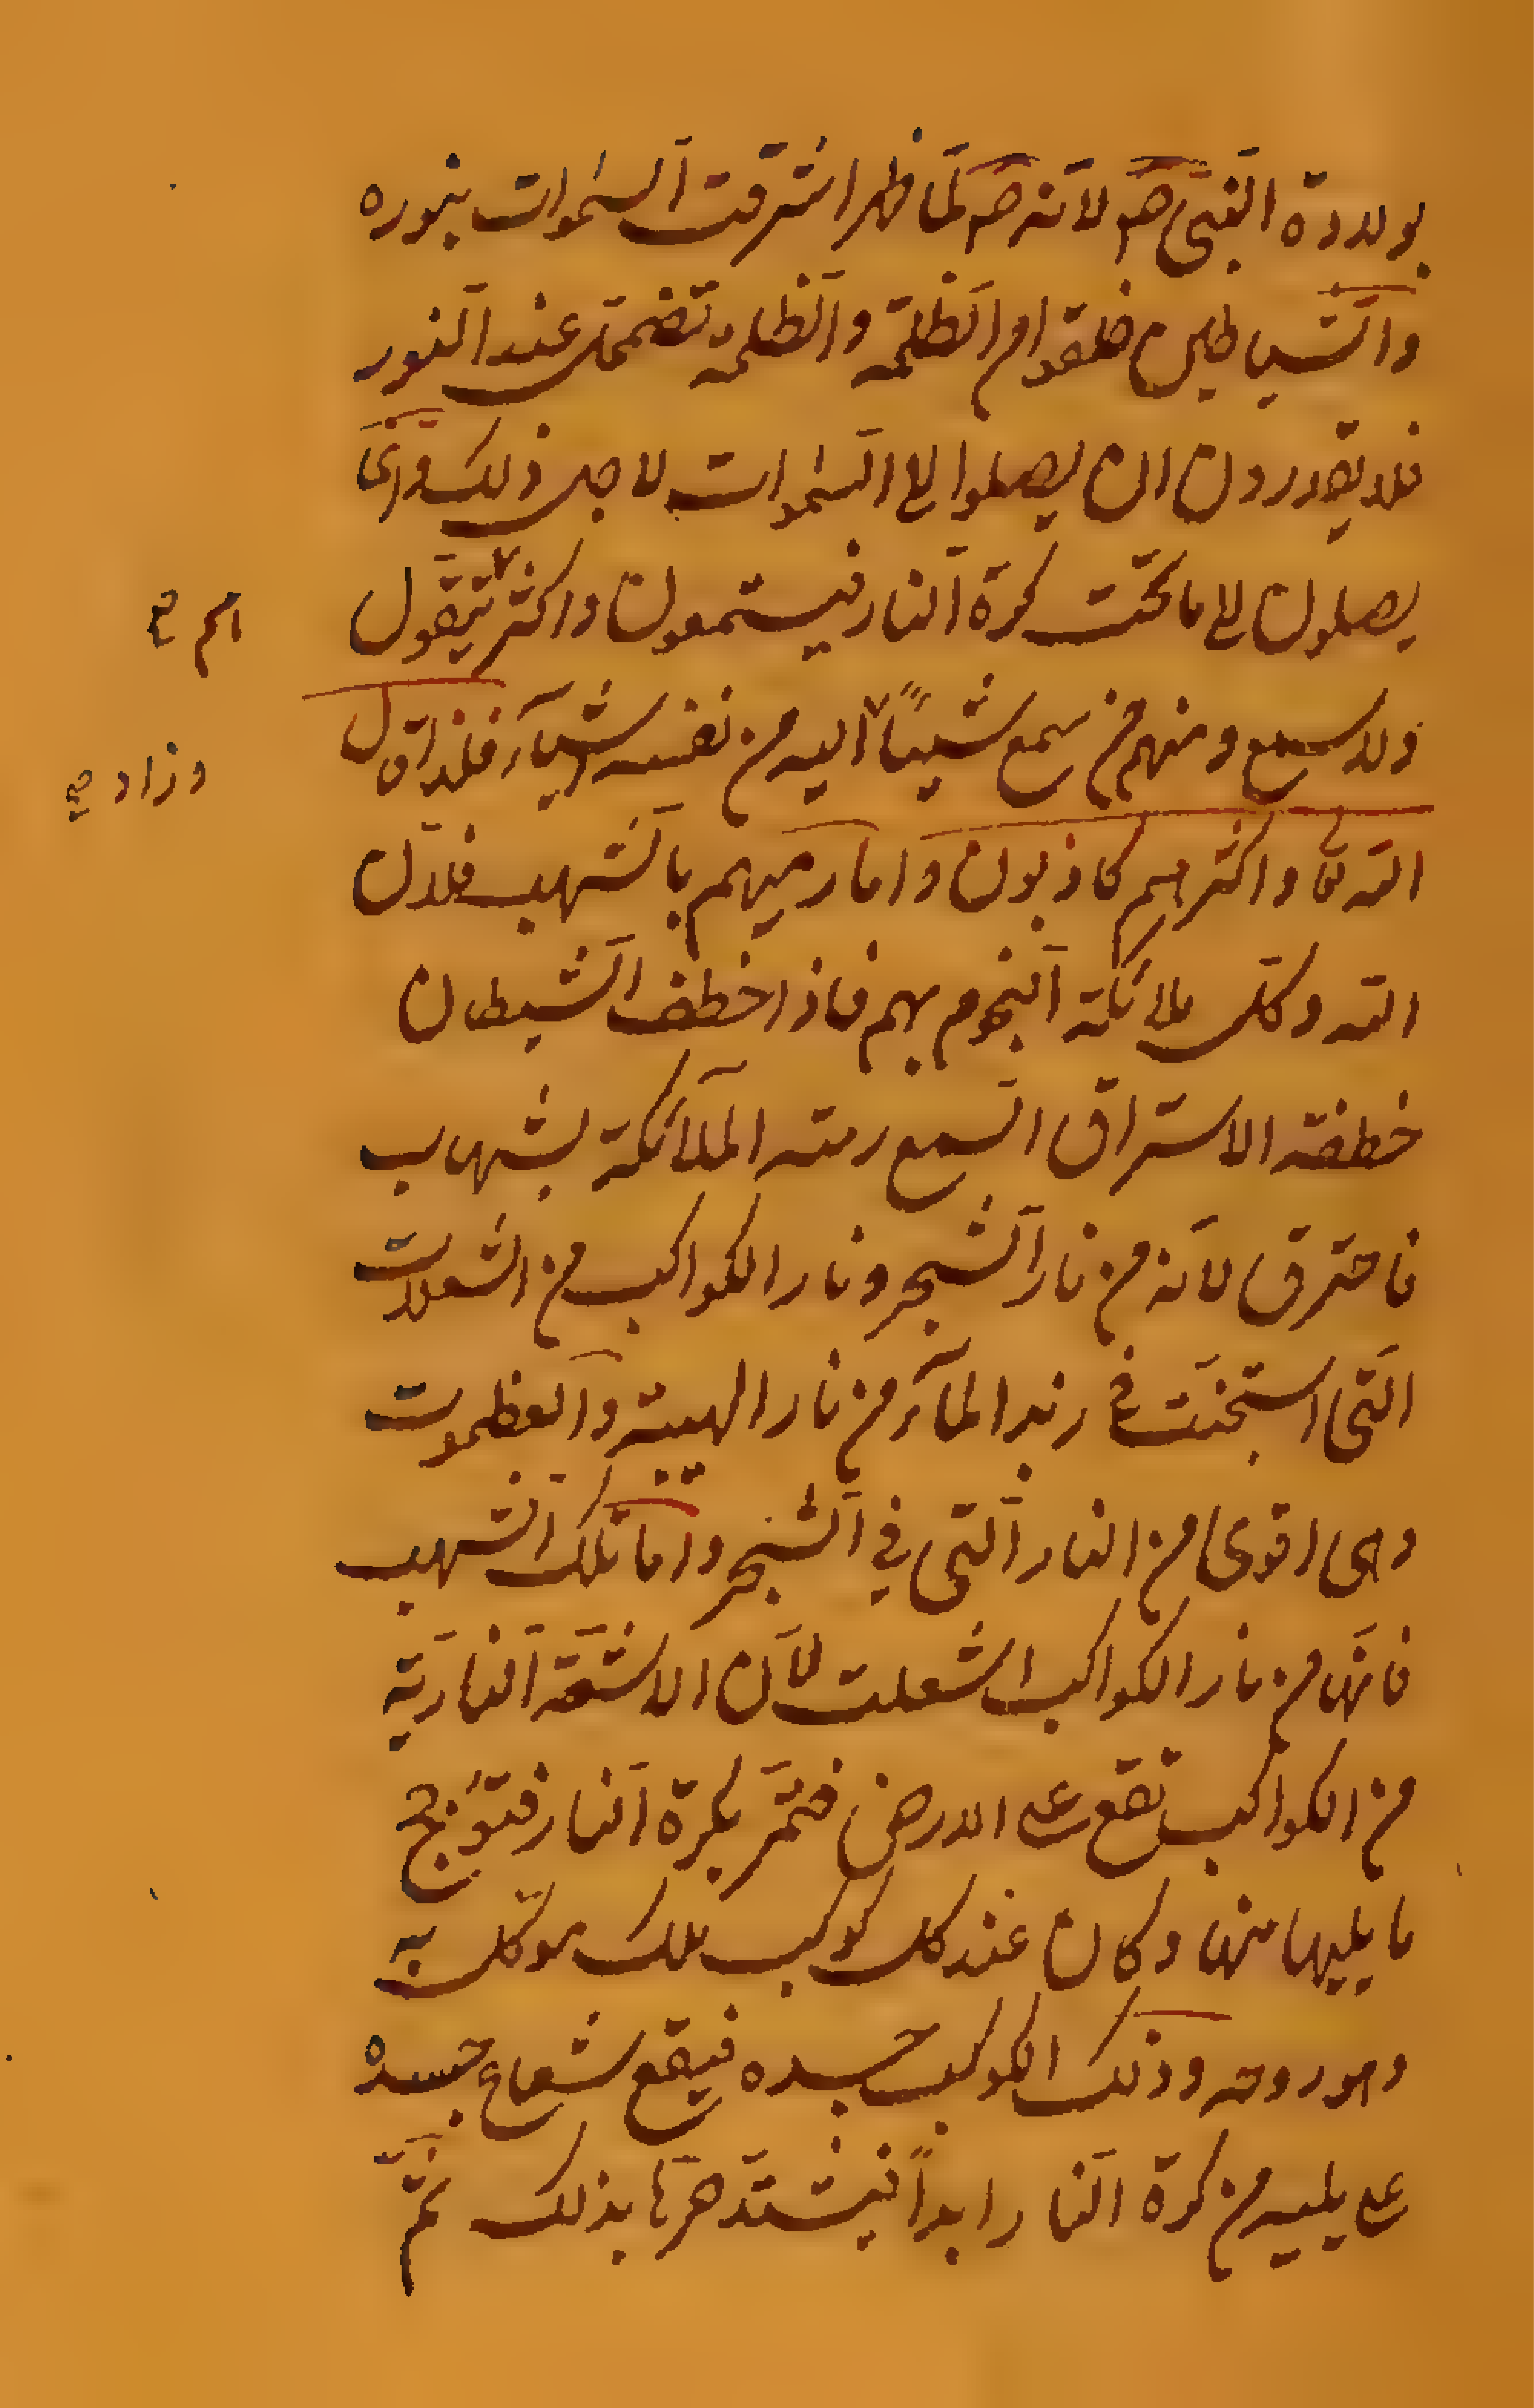 بولادة النبيّ صم لانّه صم لمّا ظهر اشرقت السّموات بنوره
والشّياطين خلقوا من الظّلمة والظّلمة تضمحلّ عند النّور
فلا يقدرون ان يصلوا الى السّموات لاجل ذلك وانّما
يصلون الى ما تحت كرة النّار فيستمعون واكثر يتقوّل
هم صح
ولا سمع ومنهم من سمع شيئاً اليه من نفسه اشيآء فلذا قال
وزاد صح
الله تعا واكثرهم كاذبون وامّا رميهم بالشّهب فلانّ
الله وكّل ملائكة النّجوم بهم فاذا خطف الشّيطان
خطفة الاستراق السّمع رمته الملآئكة بشهاب
فاحترق لانّه من نار الشّجر ونار الكواكب من الشعلات
التّي استجنّت في زند المآء من نار الهيبة والعظموت
وهي اقوى من النار الّتي في الشّجر وامّا تلك الشّهب
فانّها من نار الكواكب اشعلت لانّ الاشعّة النّاريّة
من الكواكب تقع على الارض فتمرّ بكرة النّار فتؤجّج
ما يليها منها وكان عند كل كوكب ملك موكّل به
وهو روحه وذلك الكوكب جسده فيقع شعاع جسده
على يليه من كرة النّار ابداً فيشتدّ حرّها بذلك ثمّ